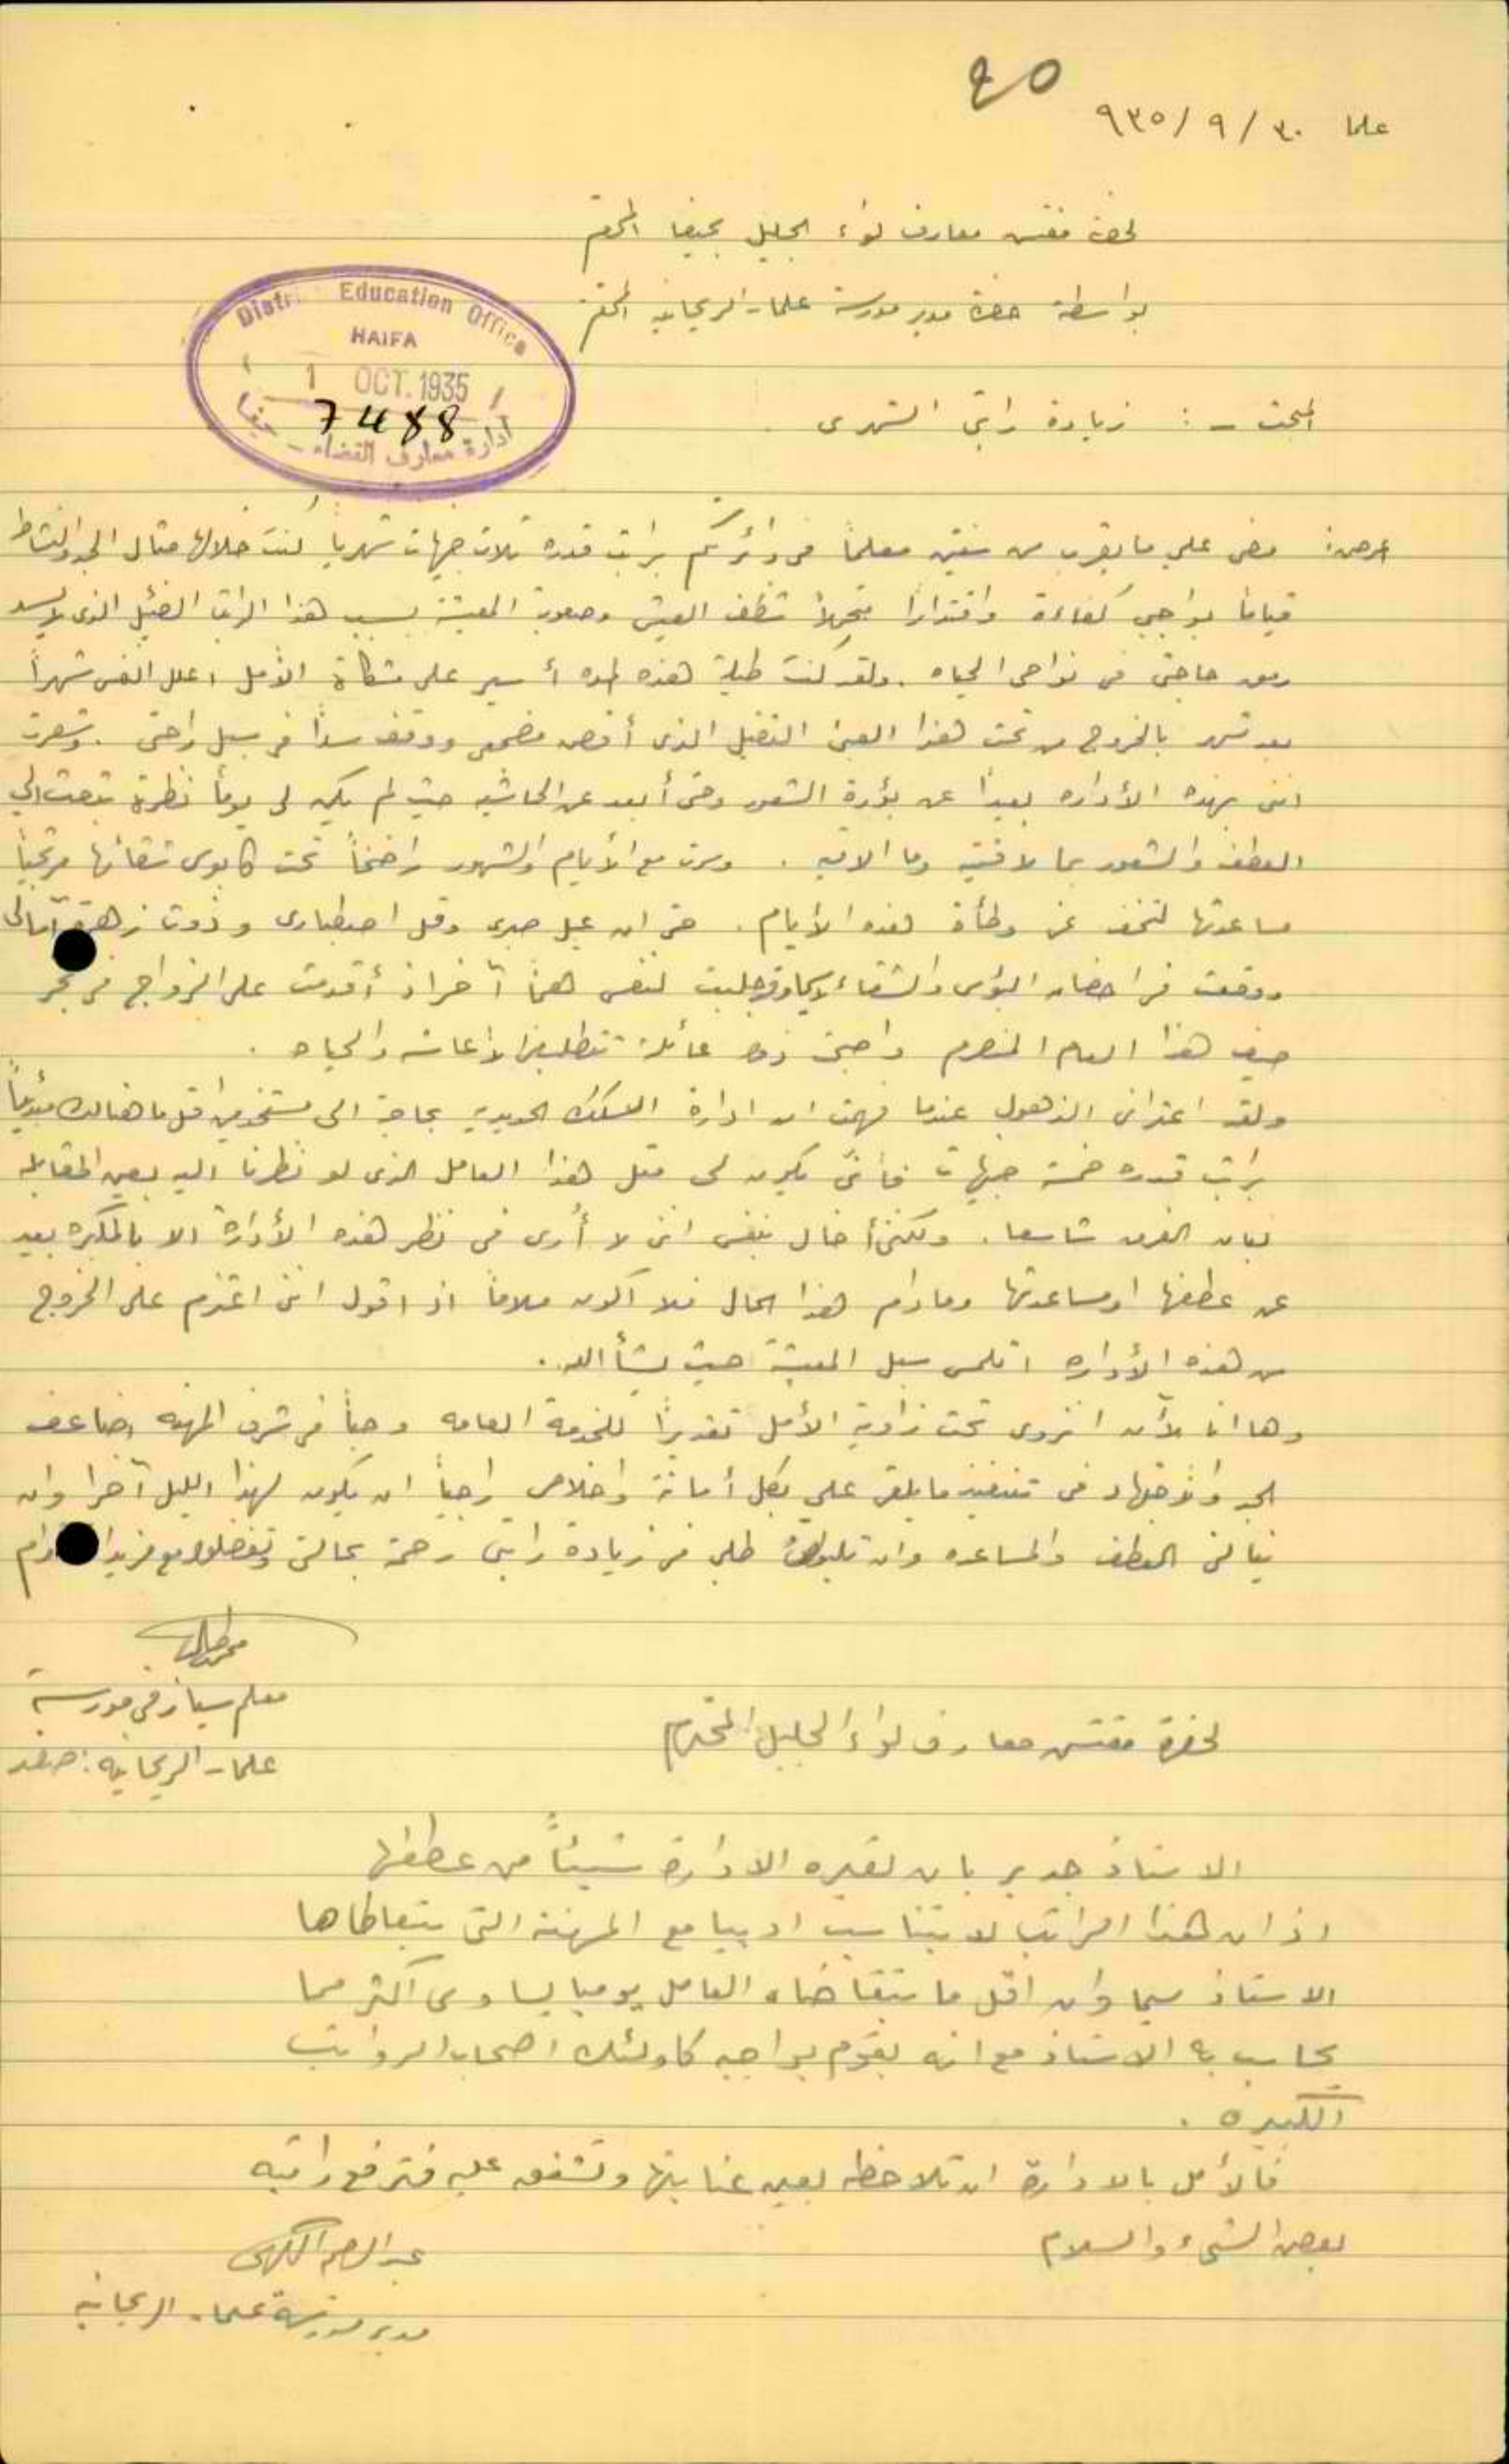 ٤٥
علما ٣٠ / ٩ / ٩٣٥
لحضرة مفتش معارف لواء الجليل بحيفا المحترم
بواسطة حضرة مدير مدرسة علما - الريحانيه المحترم
Education Office
HAIFA
1 OCT. 1935
7488
ادارة معارف القضاء - حيفا
المبحث - : زيادة راتبي الشهري .
مضى علي ما يقرب من سنتين معلماً في دائرتكم براتب قدره ثلاث جنيهات شهرياً كنت خلالها مثال الجد والنشاط
قياماً بواجبي كفاءة واقتداراً متحملاً شظف العيش وصعوبة المعيشة بسبب هذا الراتب الضئيل الذي لا يسد
رمق حاجتي في نواحي الحياه . ولقد كنت طيلة هذه المده أسير على مشكاة الأمل اعلل النفس شهراً
بعد شهر بالخروج من تحت هذا العبئ الثقيل الذي أقض مضجعي ووقف سداً في سبيل راحتي . وشعرت
انني بهذه الأداره بعيداً عن بؤرة الشعور وحتى أبعد عن الحاشيه حيث لم يكن لي يوماً نظرة تبعث الي
العطف والشعور بما لاقيته وما الاقيه . وسرت مع الأيام والشهور راضخاً تحت كابوس شقائها مرتجياً
مساعدتها لتخفف عني وطأة هذه الأيام . حتى ان عيل صبري وقل اصطباري وذوت زهرة آمالي
ووقعت في احضان البؤس والشقاء لاسيما وقد جلبت لنفسي همّاً آخر اذ أقدمت على الزواج في
صيف هذا العام المنصرم واصبحت ذو عائلة تتطلب الاعاشه والحياه .
ولقد اعتراني الذهول عندما فهمت ان ادارة السكك الحديديه بحاجة الى مستخدمين اقل ما هنالك مبدئياً
براتب قدره خمسة جنيهات فأنّى يكون لي مثل هذا العامل الذي لو نظرنا اليه بعين المقابله
لبان الفرق شاسعا . ولكني أخال بنفسي انني لا أُرى في نظر هذه الأدارة الا بالمكبره بعيد
عن عطفها او مساعدتها ومادام هذا الحال فلا اكون ملاماً اذ اقول انني اعتزم على الخروج
من هذه الأداره اتلمس سبل المعيشة حيث يشأ الله .
وها انا الآن انزوي تحت زاوية الأمل تقديراً للخدمة العامه وحباً في شرف المهنه اضاعف
الجد والأجتهاد في تنفيذ ما يلقى علي بكل أمانة واخلاص راجياً ان يكون لهذا الليل آخرا وان
ينالني العطف والمساعده وان طلبي في زيادة راتبي رحمة بحالتي وتفضلوا مع مزيد
معلم سيار في مدرسة
علما - الريحانيه : صفد
لحضرة مفتش معارف لواء الجليل المحترم
الاستاذ جدير بان تعيره الادارة شيئاً من عطفها
اذ ان هذا الراتب لا يتناسب ادبيا مع المهنة التي يتعاطاها
الاستاذ سيما وان اقل ما يتقاضاه العامل يوميا يساوي اكثر مما
يحاسب به الاستاذ مع انه يقوم بواجبه كاولئك اصحاب الرواتب
الكبيره .
فالأمل بالادارة ان تلاحظه بعين عنايتها وتشفق عليه فترفع راتبه
بعض الشيء والسلام
مدير مدرسة علما - الريحانيه